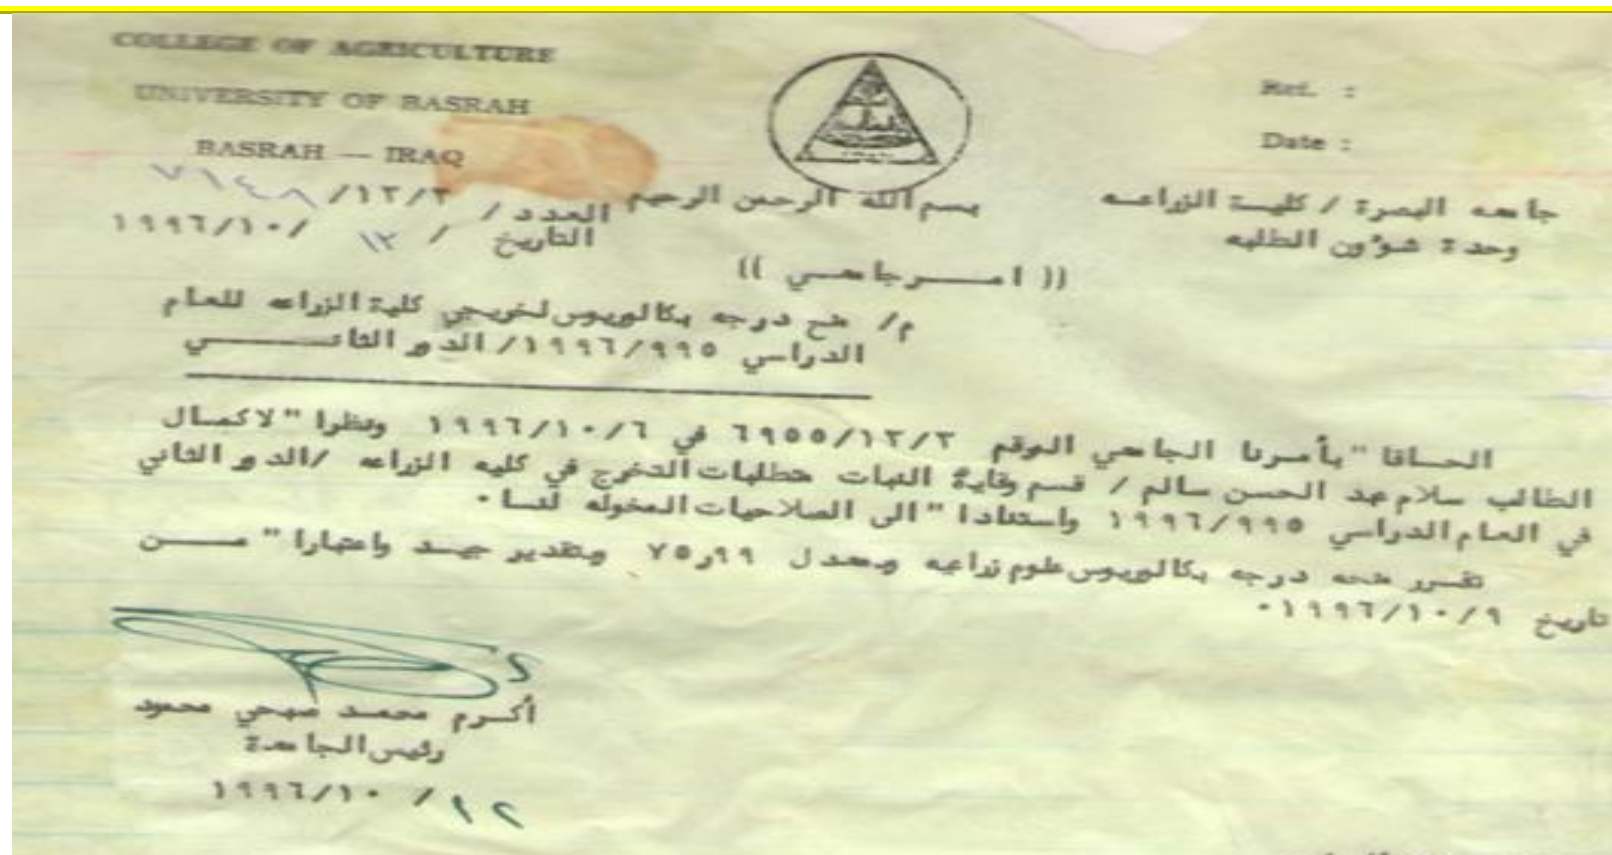 COLLEGE OF AGRICULTURE
UNIVERSITY OF BASRAH
BASRAH — IRAQ
Ref. :
Date :
بسم الله الرحمن الرحيم
جامعه البصرة / كليـة الزراعـه
وحدة شوٴون الطلبه
العدد / ٧١٤٨/١٢/٣
التاريخ / ١٢ /١٩٩٦/١٠
(( امـــر جامعـــي ))
م/ منح درجه بكالوريوس لخريجي كلية الزراعه للعام
الدراسي ١٩٩٦/٩٩٥/ الدور الثانـــــي
الحـاقا " بأمـرنا الجامعي المرقم ٦٩٥٥/١٢/٣ في ١٩٩٦/١٠/٦ ونظرا " لاكمـال
الطالب سلام عبد الحسن سالم / قسم وقاية النبات متطلبات التخرج في كليه الزراعه /الدور الثاني
في العام الدراسي ١٩٩٦/٩٩٥ واستنادا " الى الصلاحيات المخوله لنـا ٠
تقـرر منحه درجه بكالوريوس علوم زراعيه وبمعدل ٩٩ر٧٥ وبتقدير جيـد واعتبارا " مـــن
تاريخ ١٩٩٦/١٠/٩ ٠
أكـرم محمـد صبحي محمود
رئيس الجامعة
١٢ / ١٩٩٦/١٠